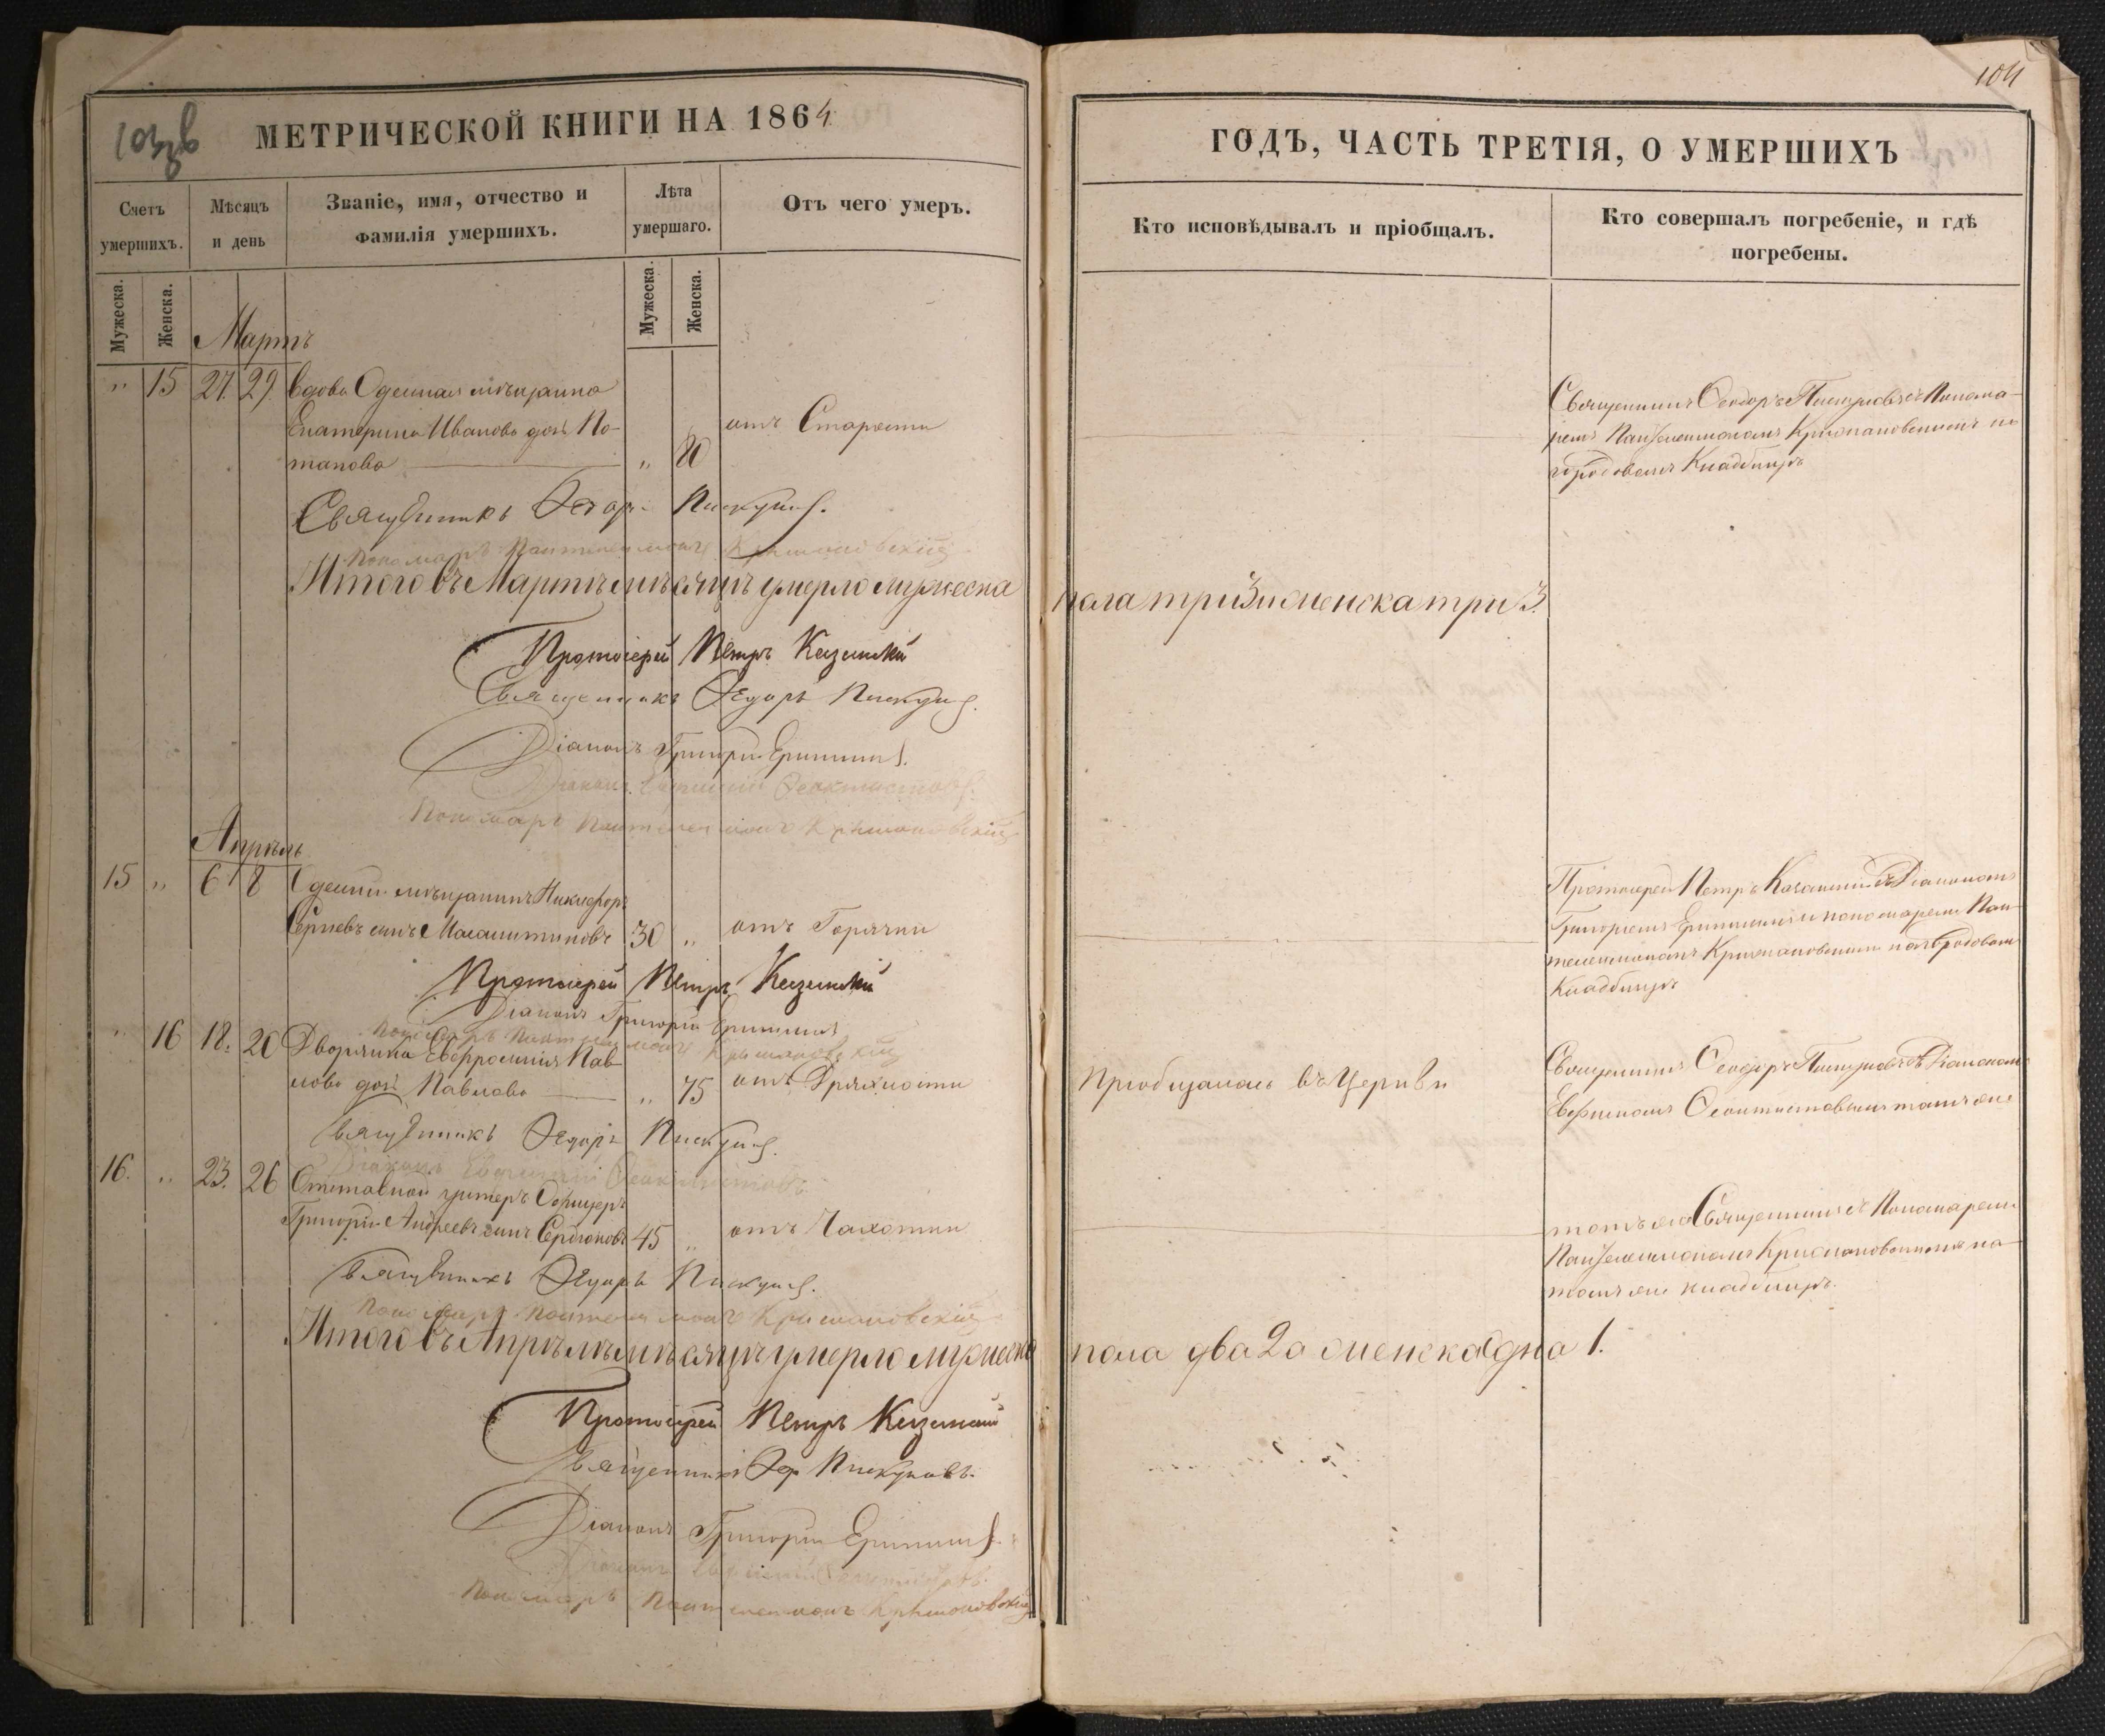 103 зв
МЕТРИЧЕСКОЙ КНИГИ НА 1864
Счетъ умершихъ.
Мѣсяцъ и день
Званіе, имя, отчество и фамилія умершихъ.
Лѣта умершаго.
Отъ чего умеръ.
Мужеска.
Женска.
Мужеска.
Женска.
Мартъ
" 15 27. 29. Вдова Одесская мѣщанка
Екатерина Иванова дочь По-
тапова " 80 отъ Старости
Священникъ Ѳеодоръ Пискуновъ.
Пономарь Пантелеимонъ Крыжановскій
Итого въ Мартѣ мѣсяцѣ умерло мужеска
Протоіерей Петръ Казанскій
Священникъ Ѳедоръ Пискуновъ.
Діаконъ Григорій
Діаконъ Евфимій Ѳеоктистовъ
Пономарь Пантелеимонъ Крыжановскій
Апрѣль
15 " 6 8 Одесскій мѣщанинъ Никифоръ
Сергіевъ сынъ 30 " отъ Горячки
Протоіерей Петръ Казанскій
Діаконъ Григорій
Пономарь Пантелеимонъ Крыжановскій
" 16 18. 20 Дворянка Евфросинія Пав-
лова дочь Павлова " 75 отъ Дряхлости
Священникъ Ѳедоръ Пискуновъ.
Діаконъ Евфимій Ѳеоктистовъ
16. " 23. 26 Отставной унтеръ Офицеръ
Григорій Андреевъ сынъ 45 " отъ Чахотки
Священникъ Ѳедоръ Пискуновъ.
Пономарь Пантелеимонъ Крыжановскій
Итого въ Апрѣлѣ мѣсяцѣ умерло мужеска
Протоіерей Петръ Казанскій
Священникъ Ѳео Пискуновъ.
Діаконъ Григорій
Діаконъ Евфимій Ѳеоктистовъ.
Пономарь Пантелеимонъ Крыжановскій
104
ГОДЪ, ЧАСТЬ ТРЕТІЯ, О УМЕРШИХЪ
Кто исповѣдывалъ и пріобщалъ.
Кто совершалъ погребеніе, и гдѣ погребены.
Священникъ Ѳеодоръ Пискуновъ съ Понома-
ремъ Пантелеимономъ Крыжановскимъ на
городовомъ Кладбищѣ
пола три 3 а женска три 3.
Протоіерей Петръ Казанскій съ Діакономъ
Григоріемъ и пономаремъ Пан-
телеимономъ Крыжановскимъ на городовомъ
Кладбищѣ
Пріобщалась въ Церкви
Священникъ Ѳеодоръ Пискуновъ съ Діакономъ
Евфиміемъ Ѳеоктистовымъ тамъ же
тотъ же Священникъ съ Пономаремъ
Пантелеимономъ Крыжановскимъ на
томъ же кладбищѣ.
пола два 2 а женска одна 1.